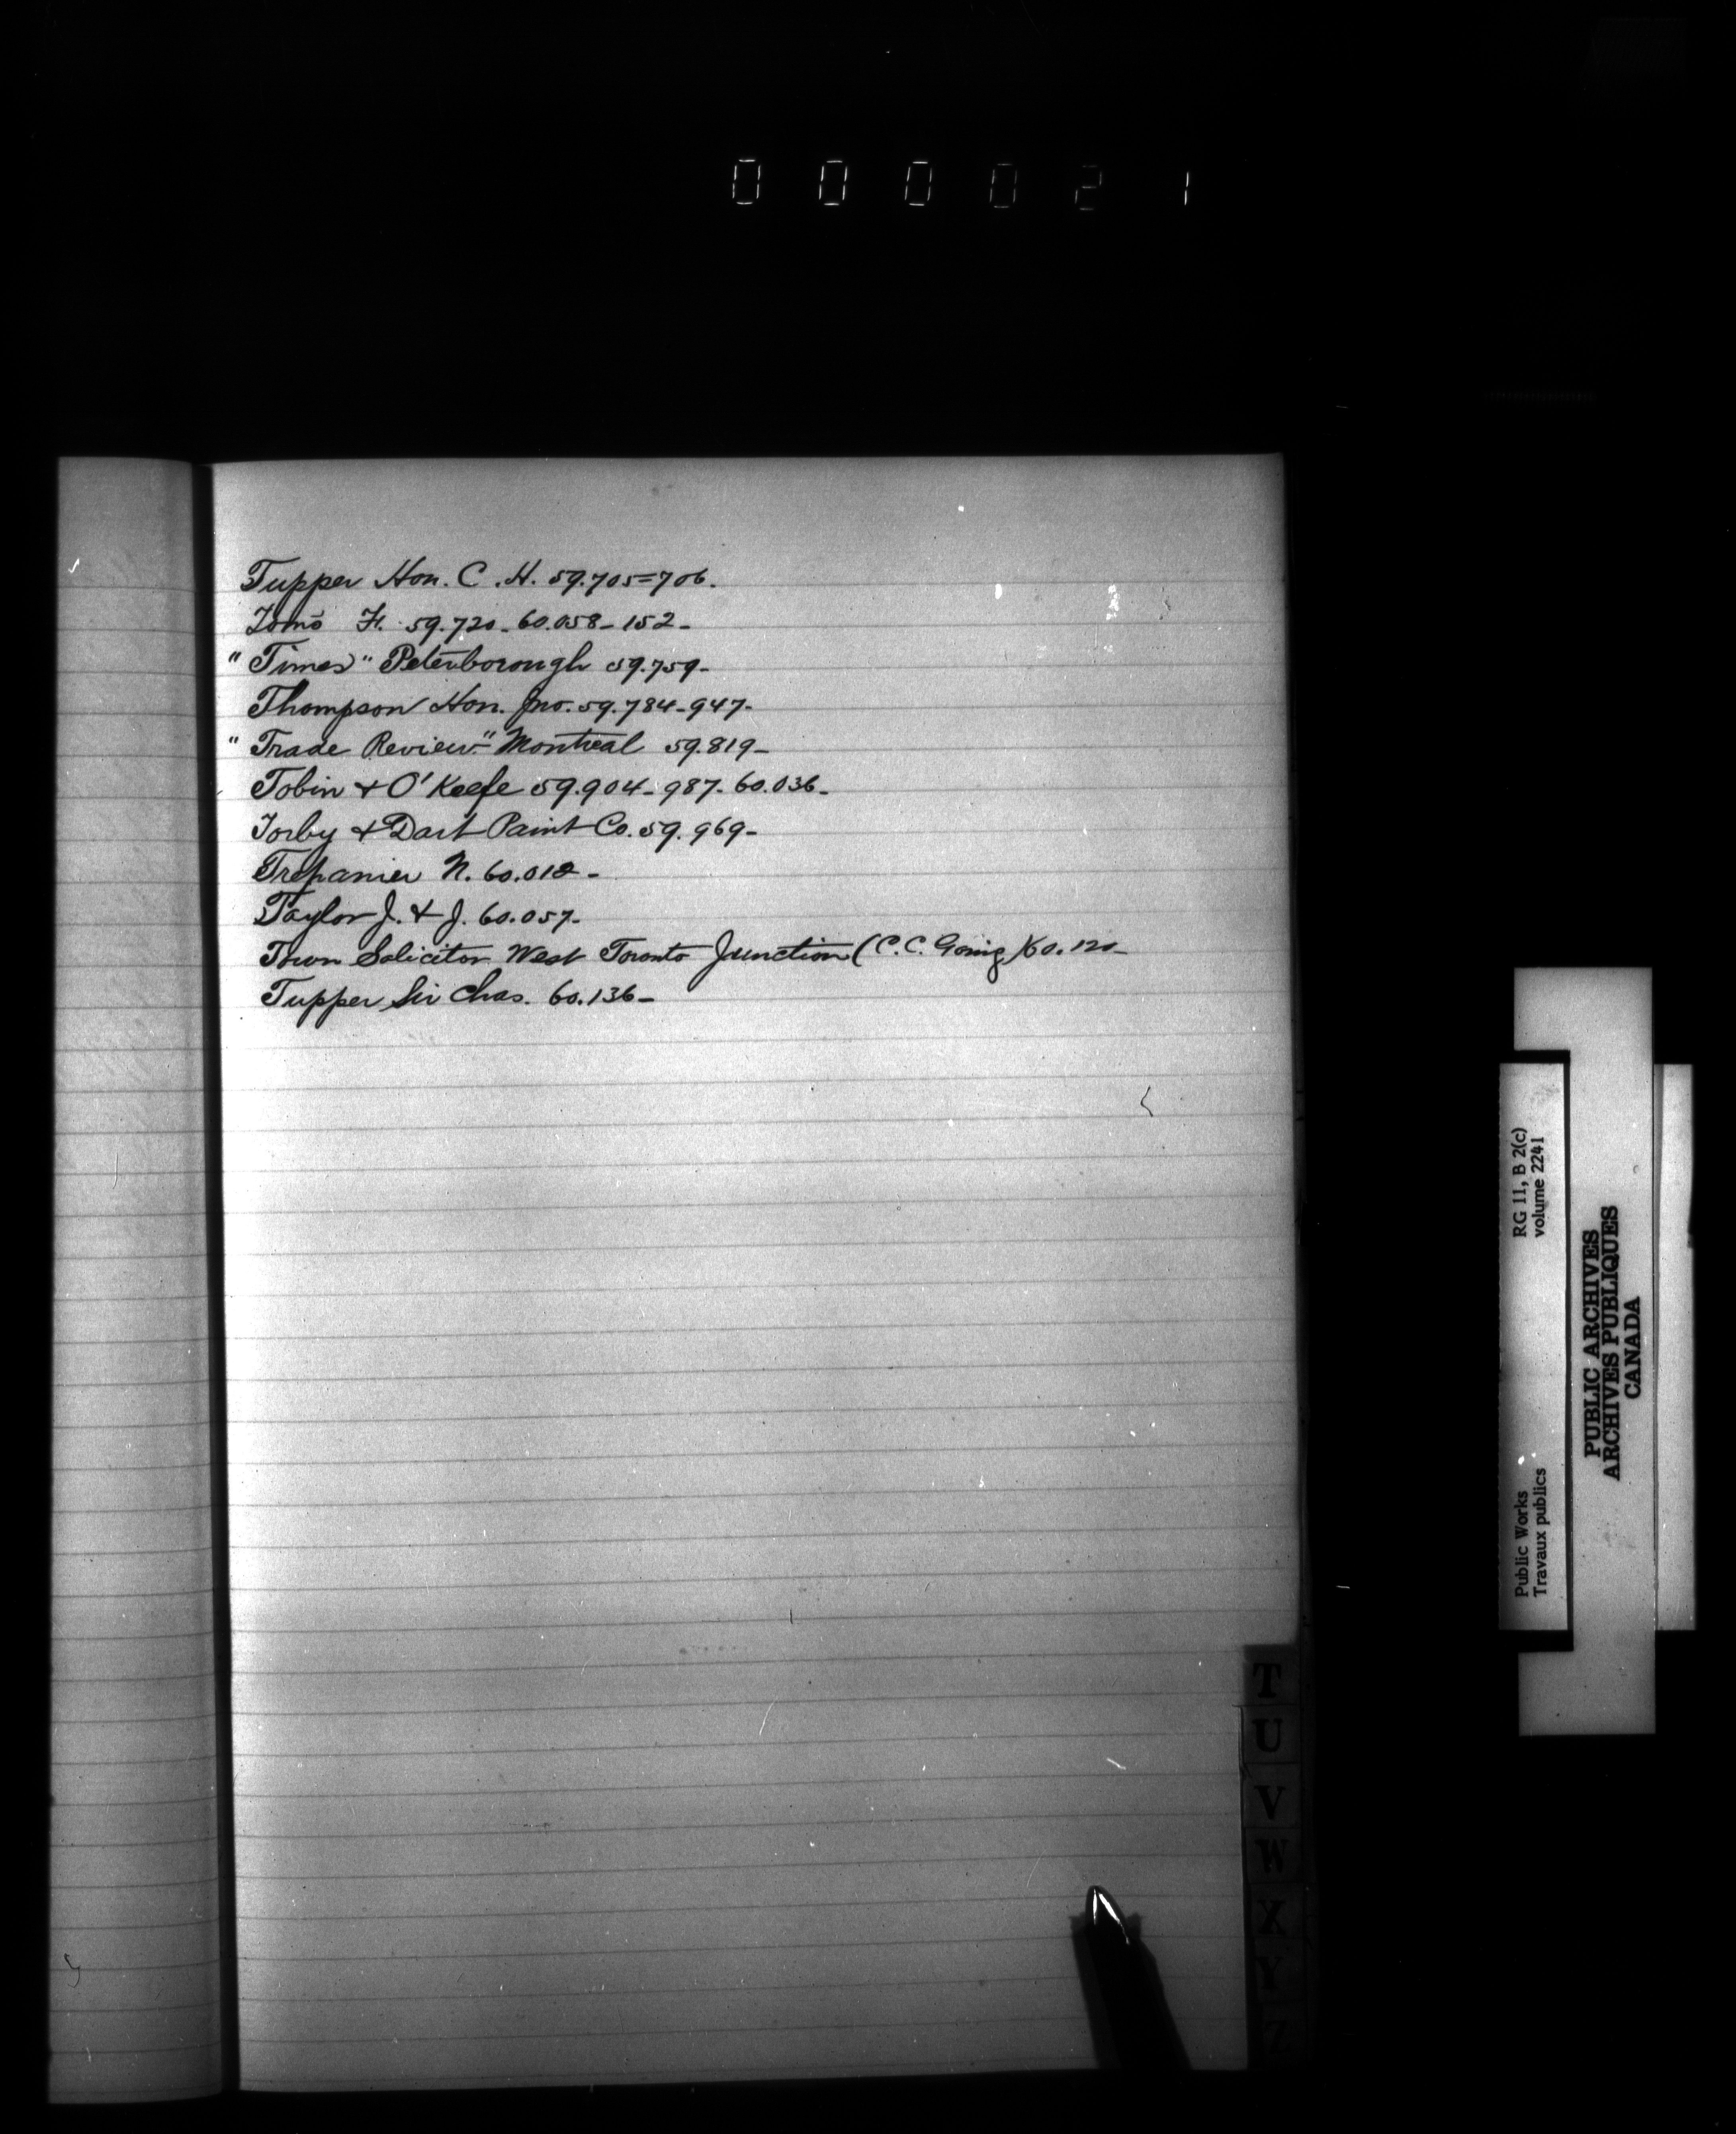 000021
Tupper Hon. C. H. 59.705=706.
Toms F. 59.720-60.058-152-
"Times" Peterborough 59.759-
Thompson Hon. Jno. 59.784-947-
"Trade Review" Montreal 59.819-
Tobin & O'Keefe 59.904-987-60.036-
Torby & Dart Paint Co. 59.969-
Trepanier N. 60.012-
Taylor J. & J. 60.057-
Town Solicitor West Toronto Junction (C.C. Going) 60.120-
Tupper Sir Chas. 60.136-
T
U
V
W
X
Y
Z
Public Works
Travaux publics
RG 11, B 2(c)
volume 2241
PUBLIC ARCHIVES
ARCHIVES PUBLIQUES
CANADA